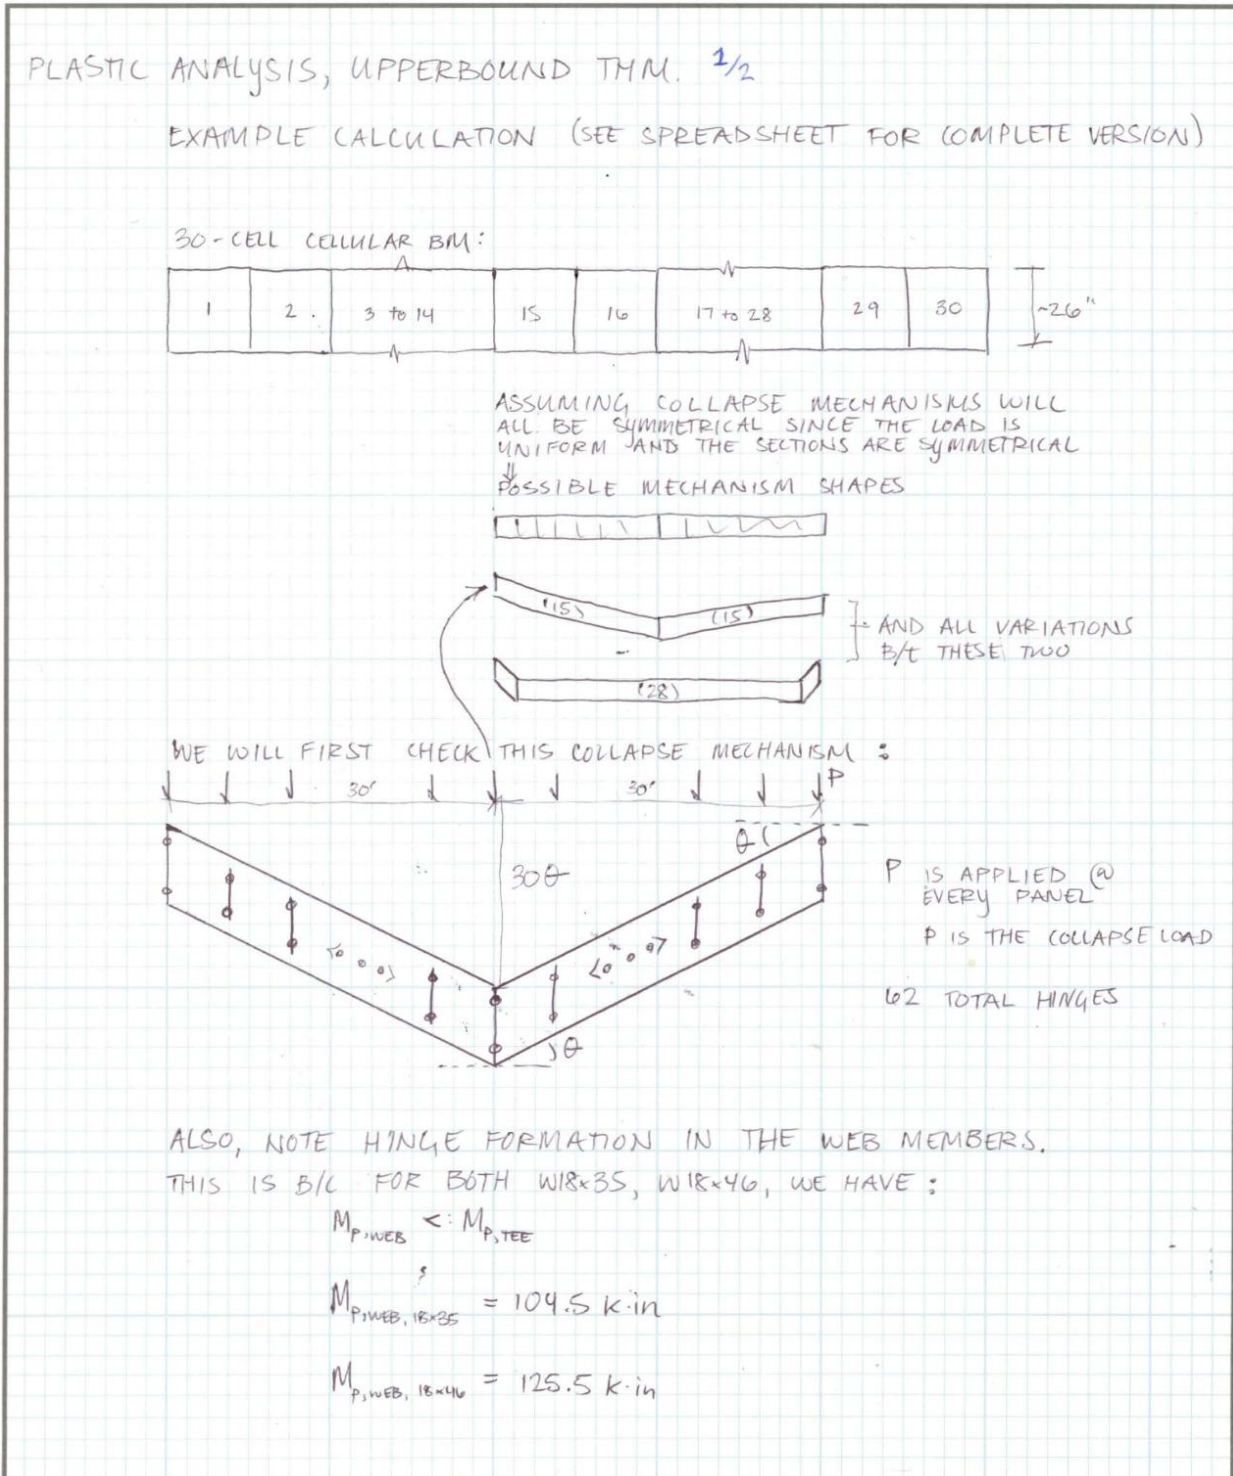 PLASTIC ANALYSIS, UPPERBOUND THM. 1/2
EXAMPLE CALCULATION (SEE SPREADSHEET FOR COMPLETE VERSION)
30-CELL CELLULAR BM:
1 2. 3 to 14 15 16 17 to 28 29 30 ~26"
ASSUMING COLLAPSE MECHANISMS WILL
ALL BE SYMMETRICAL SINCE THE LOAD IS
UNIFORM AND THE SECTIONS ARE SYMMETRICAL
⇓
POSSIBLE MECHANISM SHAPES
(15) (15)
AND ALL VARIATIONS
B/T THESE TWO
(28)
WE WILL FIRST CHECK THIS COLLAPSE MECHANISM:
30' 30' P
θ
30θ
P IS APPLIED @
EVERY PANEL
P IS THE COLLAPSE LOAD
62 TOTAL HINGES
θ
ALSO, NOTE HINGE FORMATION IN THE WEB MEMBERS.
THIS IS B/C FOR BOTH W18x35, W18x46, WE HAVE:
M_P,WEB < M_P,TEE
M_P,WEB, 18x35 = 104.5 k·in
M_P,WEB, 18x46 = 125.5 k·in